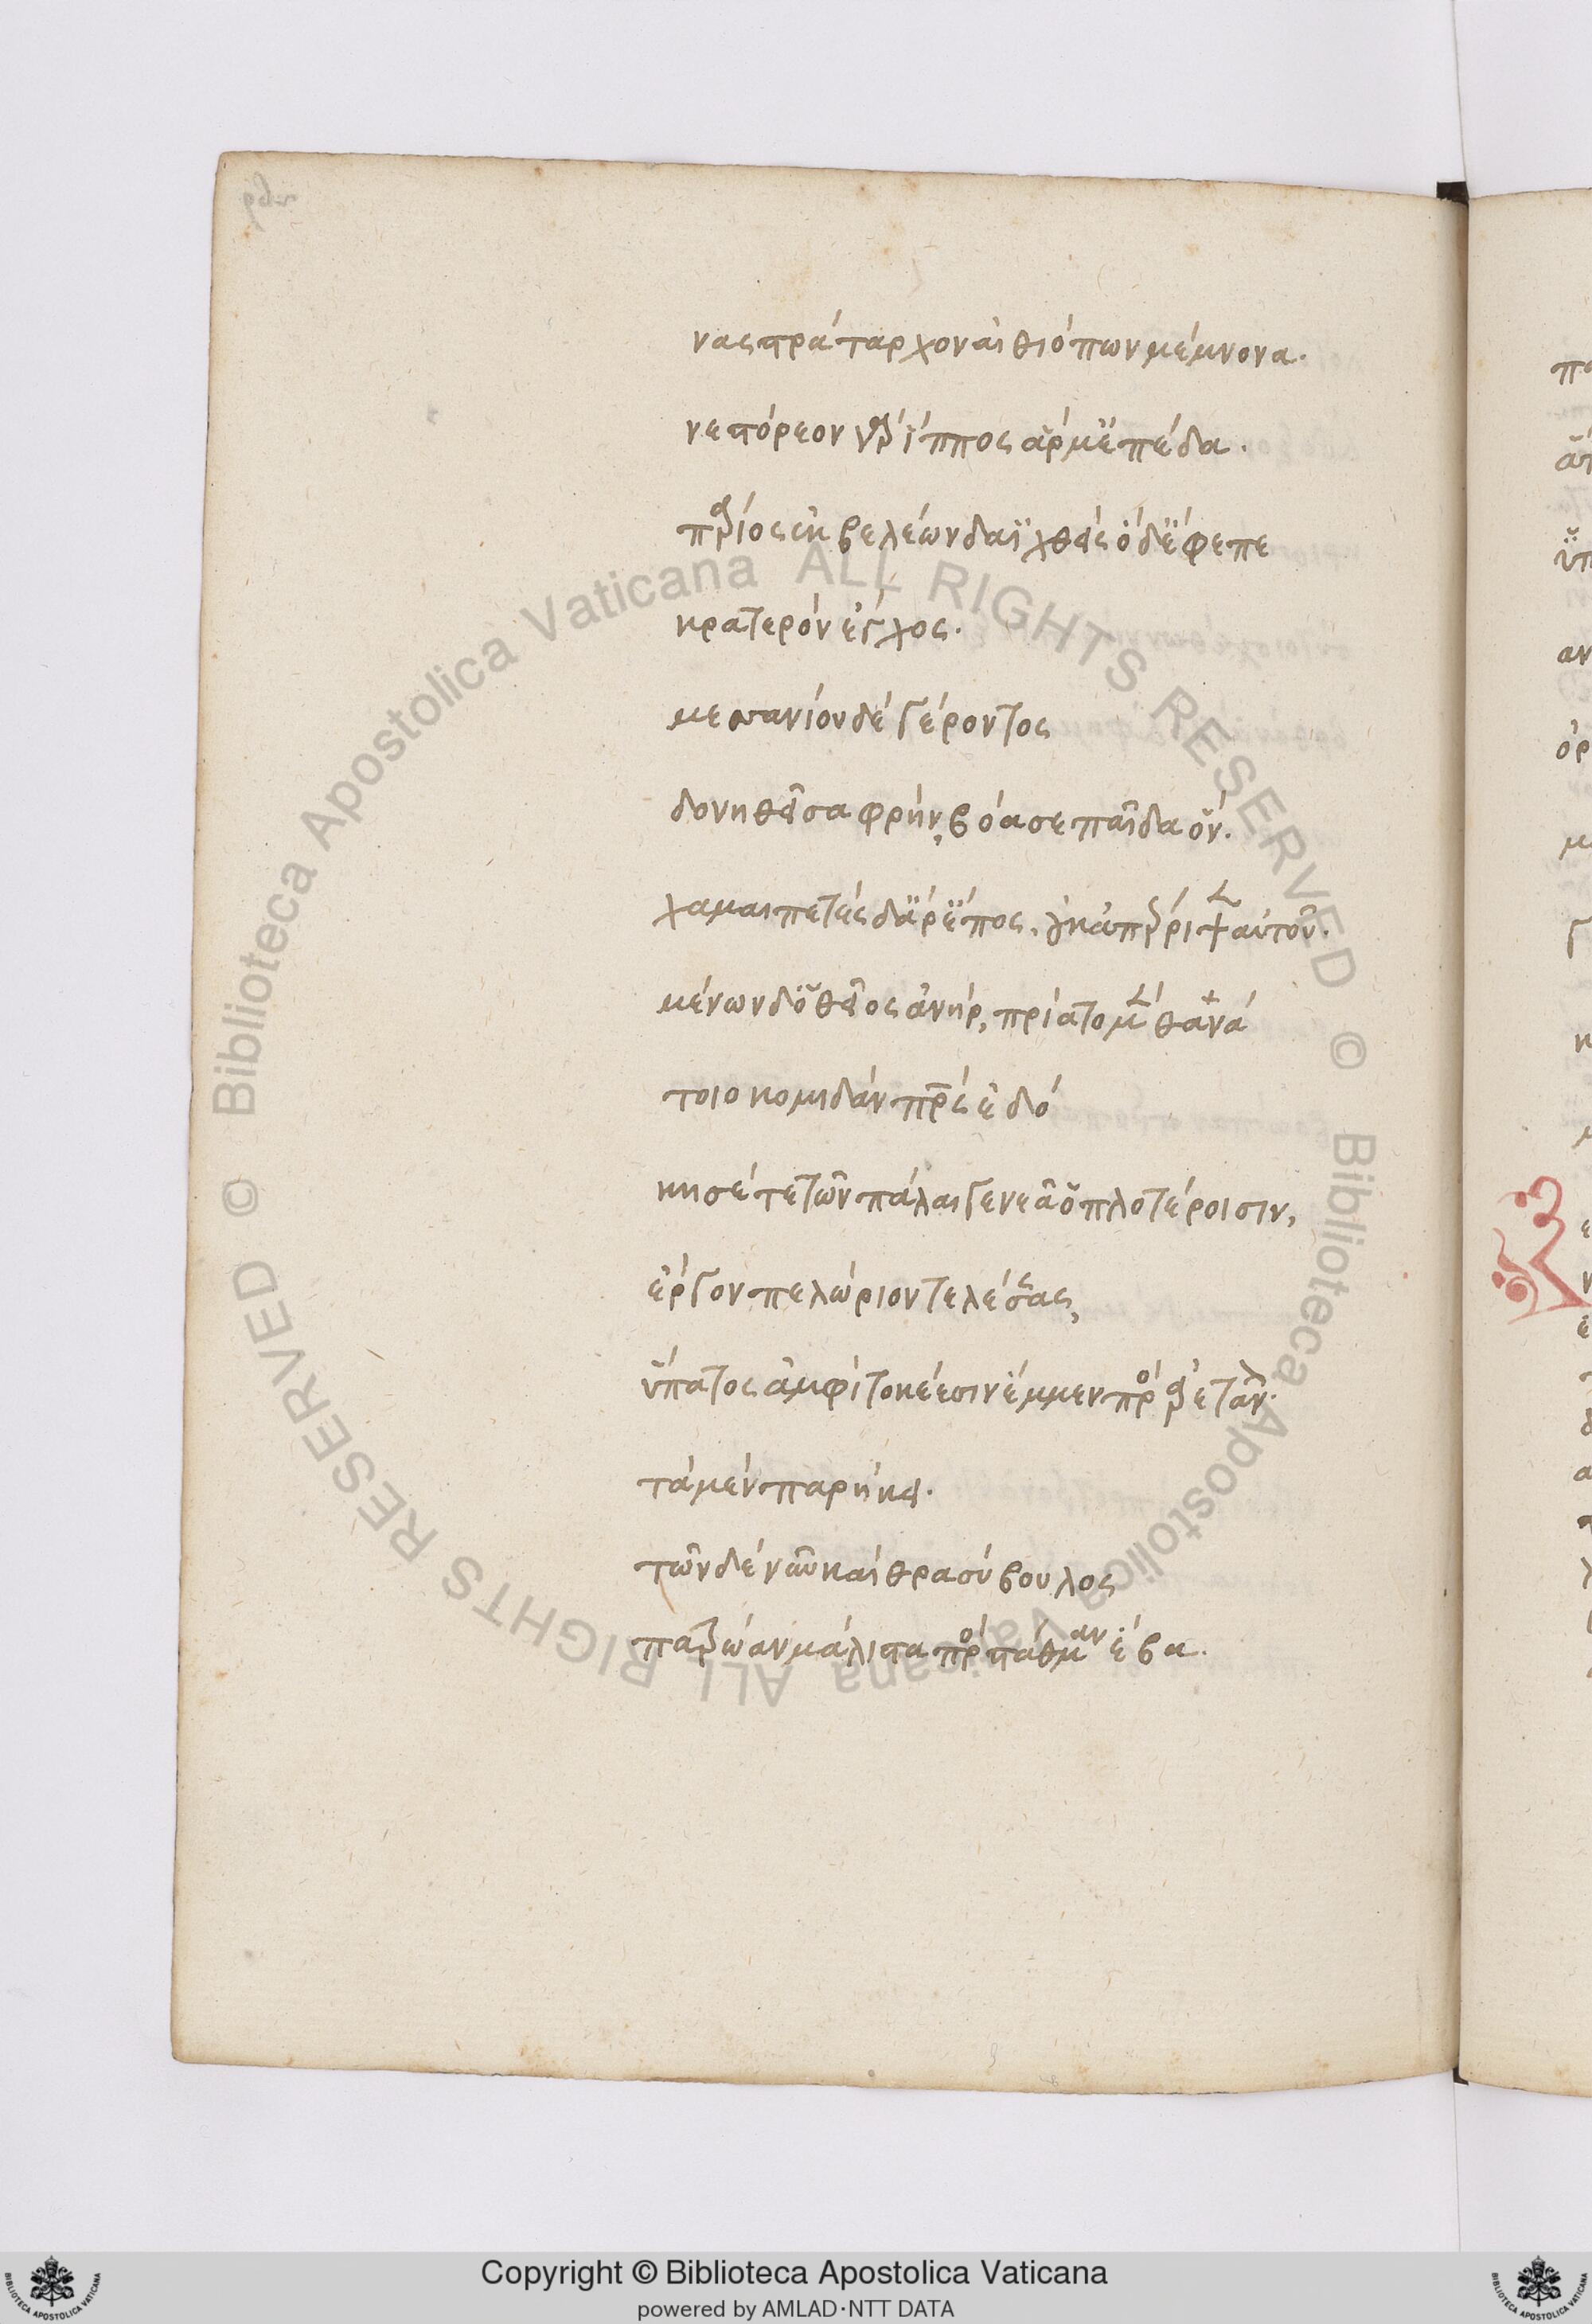 νας στράταρχον αἰθιόπων μέμνονα.
νεστόρειον γὰρ ἵππος ἅρμ' ἐπέδα.
πάριος ἐκ βελέων δαϊχθείς ὁ δ' ἔφεπε
κρατερὸν ἔγχος.
μεσσανίου δὲ γέροντος
δονηθεῖσα φρὴν, βόασε παῖδα ὅν.
χαμαιπετὲς δ' ἄρ' ἔπος, οὐκ ἀπέρριψεν αὐτοῦ.
μένων δ' ὁ θεῖος ἀνὴρ, πρίατο μὲν θανά
τοιο κομιδὰν πατρὸς ἐδό
κησέ τε τῶν πάλαι γενεᾷ ὁπλοτέροισιν,
ἔργον πελώριον τελέσσας,
ὕπατος ἀμφὶ τοκέεσιν ἔμμεν πρὸς ἀρετάν.
τὰ μὲν παρήκει.
τῶν δὲ νῦν καὶ θρασύβουλος
πατρώαν μάλιστα πρὸς στάθμαν ἔβα.
Copyright © Biblioteca Apostolica Vaticana
powered by AMLAD·NTT DATA
© Biblioteca Apostolica Vaticana ALL RIGHTS RESERVED
© Biblioteca Apostolica Vaticana ALL RIGHTS RESERVED